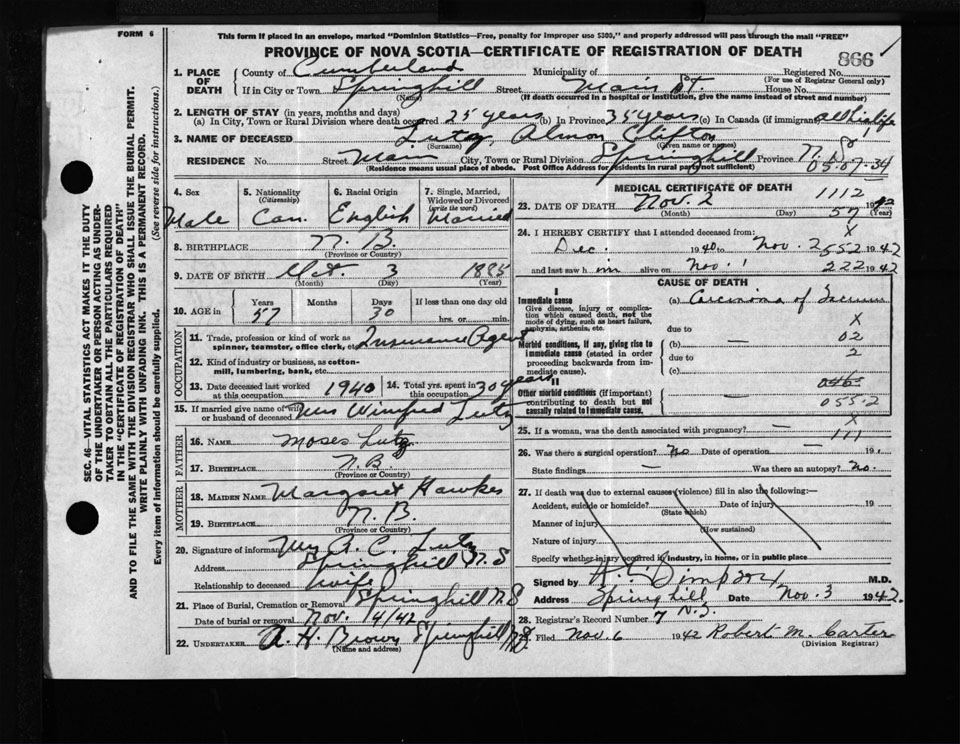 FORM 6
This form if placed in an envelope, marked "Dominion Statistics—Free, penalty for improper use $300," and properly addressed will pass through the mail "FREE"
PROVINCE OF NOVA SCOTIA—CERTIFICATE OF REGISTRATION OF DEATH
866
1. PLACE OF DEATH County of Cumberland Municipality of Registered No.
(For use of Registrar General only)
If in City or Town Springhill Street Main St. House No.
(Name) (If death occurred in a hospital or institution, give the name instead of street and number)
2. LENGTH OF STAY (in years, months and days)
(a) In City, Town or Rural Division where death occurred 25 years (b) In Province 35 years (c) In Canada (if immigrant) all his life
3. NAME OF DECEASED Lutz, Almon Clifton
(Surname) (Given name or names)
RESIDENCE No. Street Main City, Town or Rural Division Springhill Province N.S
(Residence means usual place of abode. Post Office Address for residents in rural parts not sufficient) 03-07-34
4. Sex Male
5. Nationality (Citizenship) Can.
6. Racial Origin English
7. Single, Married, Widowed or Divorced (write the word) Married
8. BIRTHPLACE N. B.
(Province or Country)
9. DATE OF BIRTH Oct. 3 1885
(Month) (Day) (Year)
10. AGE in Years 57 Months Days 30 If less than one day old hrs. or min.
OCCUPATION
11. Trade, profession or kind of work as spinner, teamster, office clerk, etc. Insurance Agent
12. Kind of industry or business, as cotton-mill, lumbering, bank, etc.
13. Date deceased last worked at this occupation 1940 14. Total yrs. spent in this occupation 30 years
15. If married give name of wife or husband of deceased Mrs Winifred Lutz
FATHER
16. NAME Moses Lutz
17. BIRTHPLACE N.B.
(Province or Country)
MOTHER
18. MAIDEN NAME Margaret Hawkes
19. BIRTHPLACE N. B.
(Province or Country)
20. Signature of informant Mrs A. C. Lutz
Address Springhill N.S
Relationship to deceased wife
21. Place of Burial, Cremation or Removal Springhill N.S
Date of burial or removal Nov. 4/42
22. UNDERTAKER A. H. Brown Springhill N.S.
(Name and address)
MEDICAL CERTIFICATE OF DEATH
1112
23. DATE OF DEATH Nov. 2 1942
(Month) (Day) (Year)
57
24. I HEREBY CERTIFY that I attended deceased from: X
Dec. 1940 to Nov. 2 1942
552
and last saw him alive on Nov. 1 1942
222
CAUSE OF DEATH
I
Immediate cause
Give disease, injury or complication which caused death, not the mode of dying, such as heart failure, asphyxia, asthenia, etc.
(a) Carcinoma of Sacrum
due to X
Morbid conditions, if any, giving rise to immediate cause (stated in order proceeding backwards from immediate cause).
(b) — 02
due to 2
(c) —
II
Other morbid conditions (if important) contributing to death but not causally related to immediate cause.
046
055.2
25. If a woman, was the death associated with pregnancy? — X
111
26. Was there a surgical operation? No Date of operation — 19
State findings — Was there an autopsy? No.
27. If death was due to external causes (violence) fill in also the following:—
Accident, suicide or homicide? Date of injury 19
(State which)
Manner of injury
(How sustained)
Nature of injury
Specify whether injury occurred in industry, in home, or in public place
Signed by Simpson M.D.
Address Springhill Date Nov. 3 1942.
N.S.
28. Registrar's Record Number 7
29. Filed Nov. 6 1942 Robert M. Carter
(Division Registrar)
SEC. 46—VITAL STATISTICS ACT MAKES IT THE DUTY
OF THE UNDERTAKER OR PERSON ACTING AS UNDER-
TAKER TO OBTAIN ALL THE PARTICULARS REQUIRED
IN THE "CERTIFICATE OF REGISTRATION OF DEATH"
AND TO FILE THE SAME WITH THE DIVISION REGISTRAR WHO SHALL ISSUE THE BURIAL PERMIT.
WRITE PLAINLY WITH UNFADING INK. THIS IS A PERMANENT RECORD.
Every item of information should be carefully supplied. (See reverse side for instructions.)